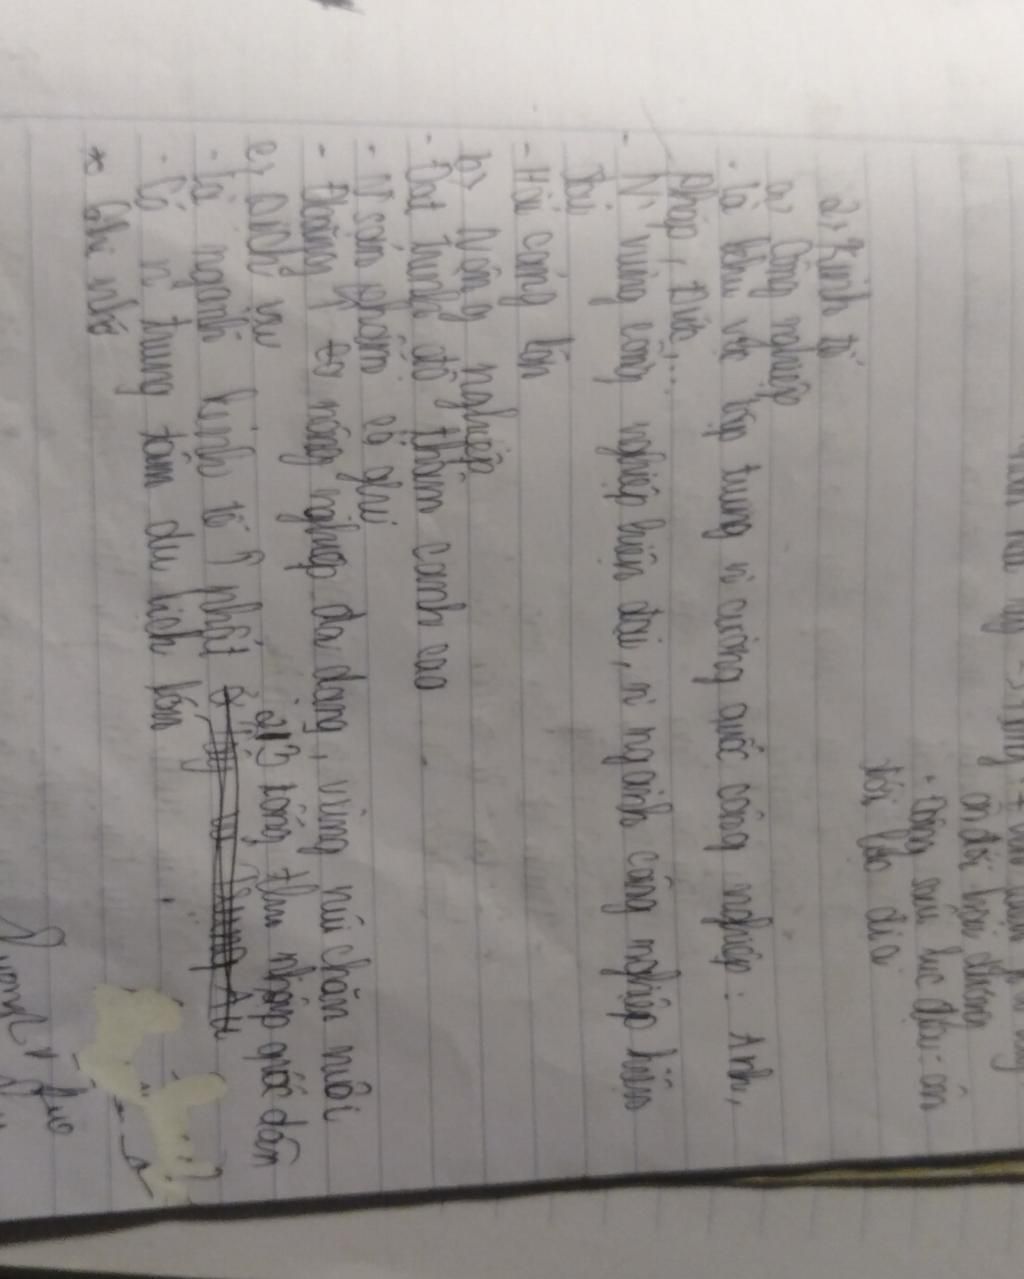 ôn đới hải dương
- Đông sau lục địa: ôn
đới lục địa
2, Kinh tế
a, Công nghiệp
- Là khu vực tập trung n' cường quốc công nghiệp: Anh,
Pháp, Đức,...
- N' vùng công nghiệp hiện đại, n' ngành công nghiệp hiện
đại
- Hải cảng lớn
b, Nông nghiệp
- Đạt trình độ thâm canh cao
- N' sản phẩm có
- trong nông nghiệp đa dạng, vùng núi chăn nuôi
c, Dịch vụ
- Là ngành kinh tế nhất tổng thu nhập quốc dân
- Có n' trung tâm du lịch lớn
* Ghi nhớ